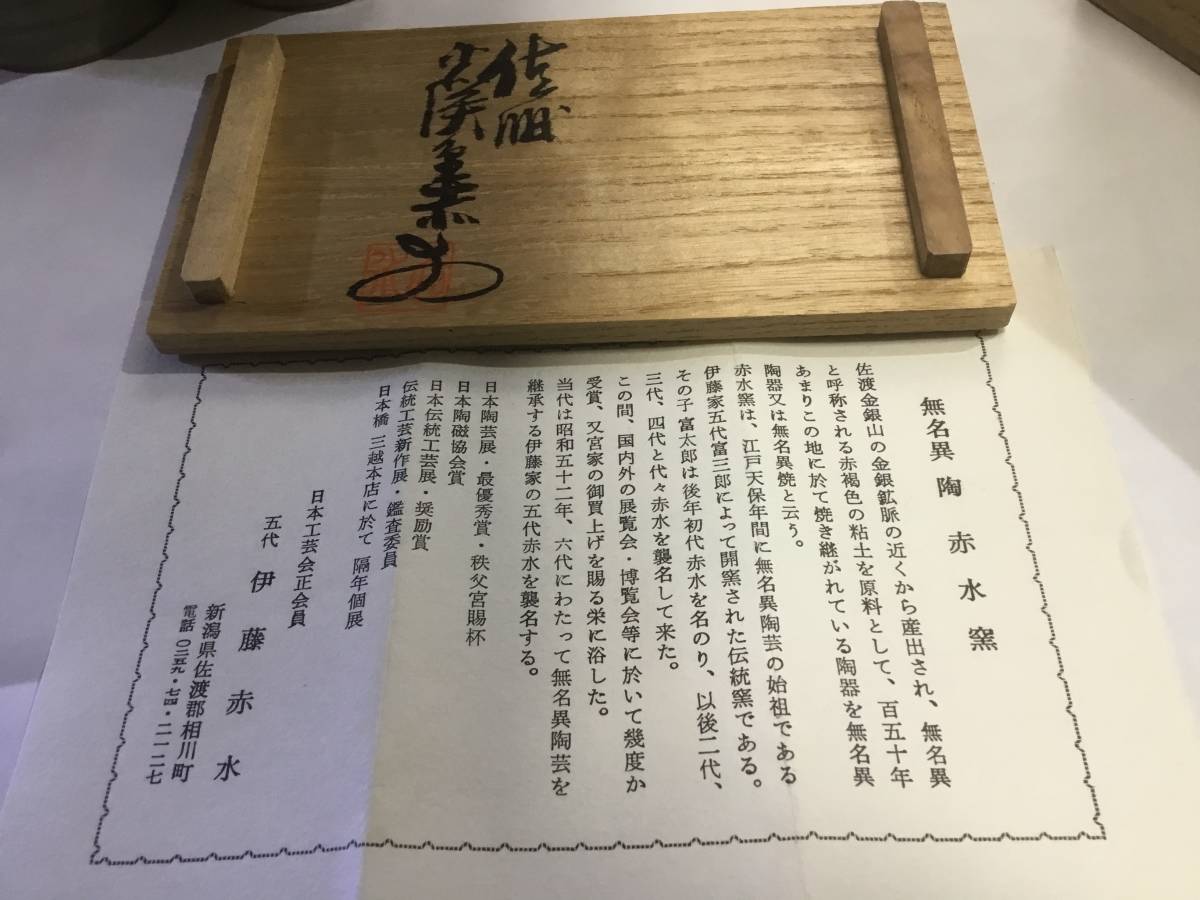 佐渡
無名異 陶 赤水窯
佐渡金銀山の金銀鉱脈の近くから産出され、無名異
と呼称される赤褐色の粘土を原料として、百五十年
あまりこの地に於て焼き継がれている陶器を無名異
陶器又は無名異焼と云う。
赤水窯は、江戸天保年間に無名異陶芸の始祖である
伊藤家五代富三郎によって開窯された伝統窯である。
その子富太郎は後年初代赤水を名のり、以後二代、
三代、四代と代々赤水を襲名して来た。
この間、国内外の展覧会・博覧会等に於いて幾度か
受賞、又宮家の御買上げを賜る栄に浴した。
当代は昭和五十二年、六代にわたって無名異陶芸を
継承する伊藤家の五代赤水を襲名する。
日本陶芸展・最優秀賞・秩父宮賜杯
日本陶磁協会賞
日本伝統工芸展・奨励賞
伝統工芸新作展・鑑査委員
日本橋 三越本店に於て 隔年個展
日本工芸会正会員
五代 伊藤赤水
新潟県佐渡郡相川町
電話 〇二五九・七四・二一二七